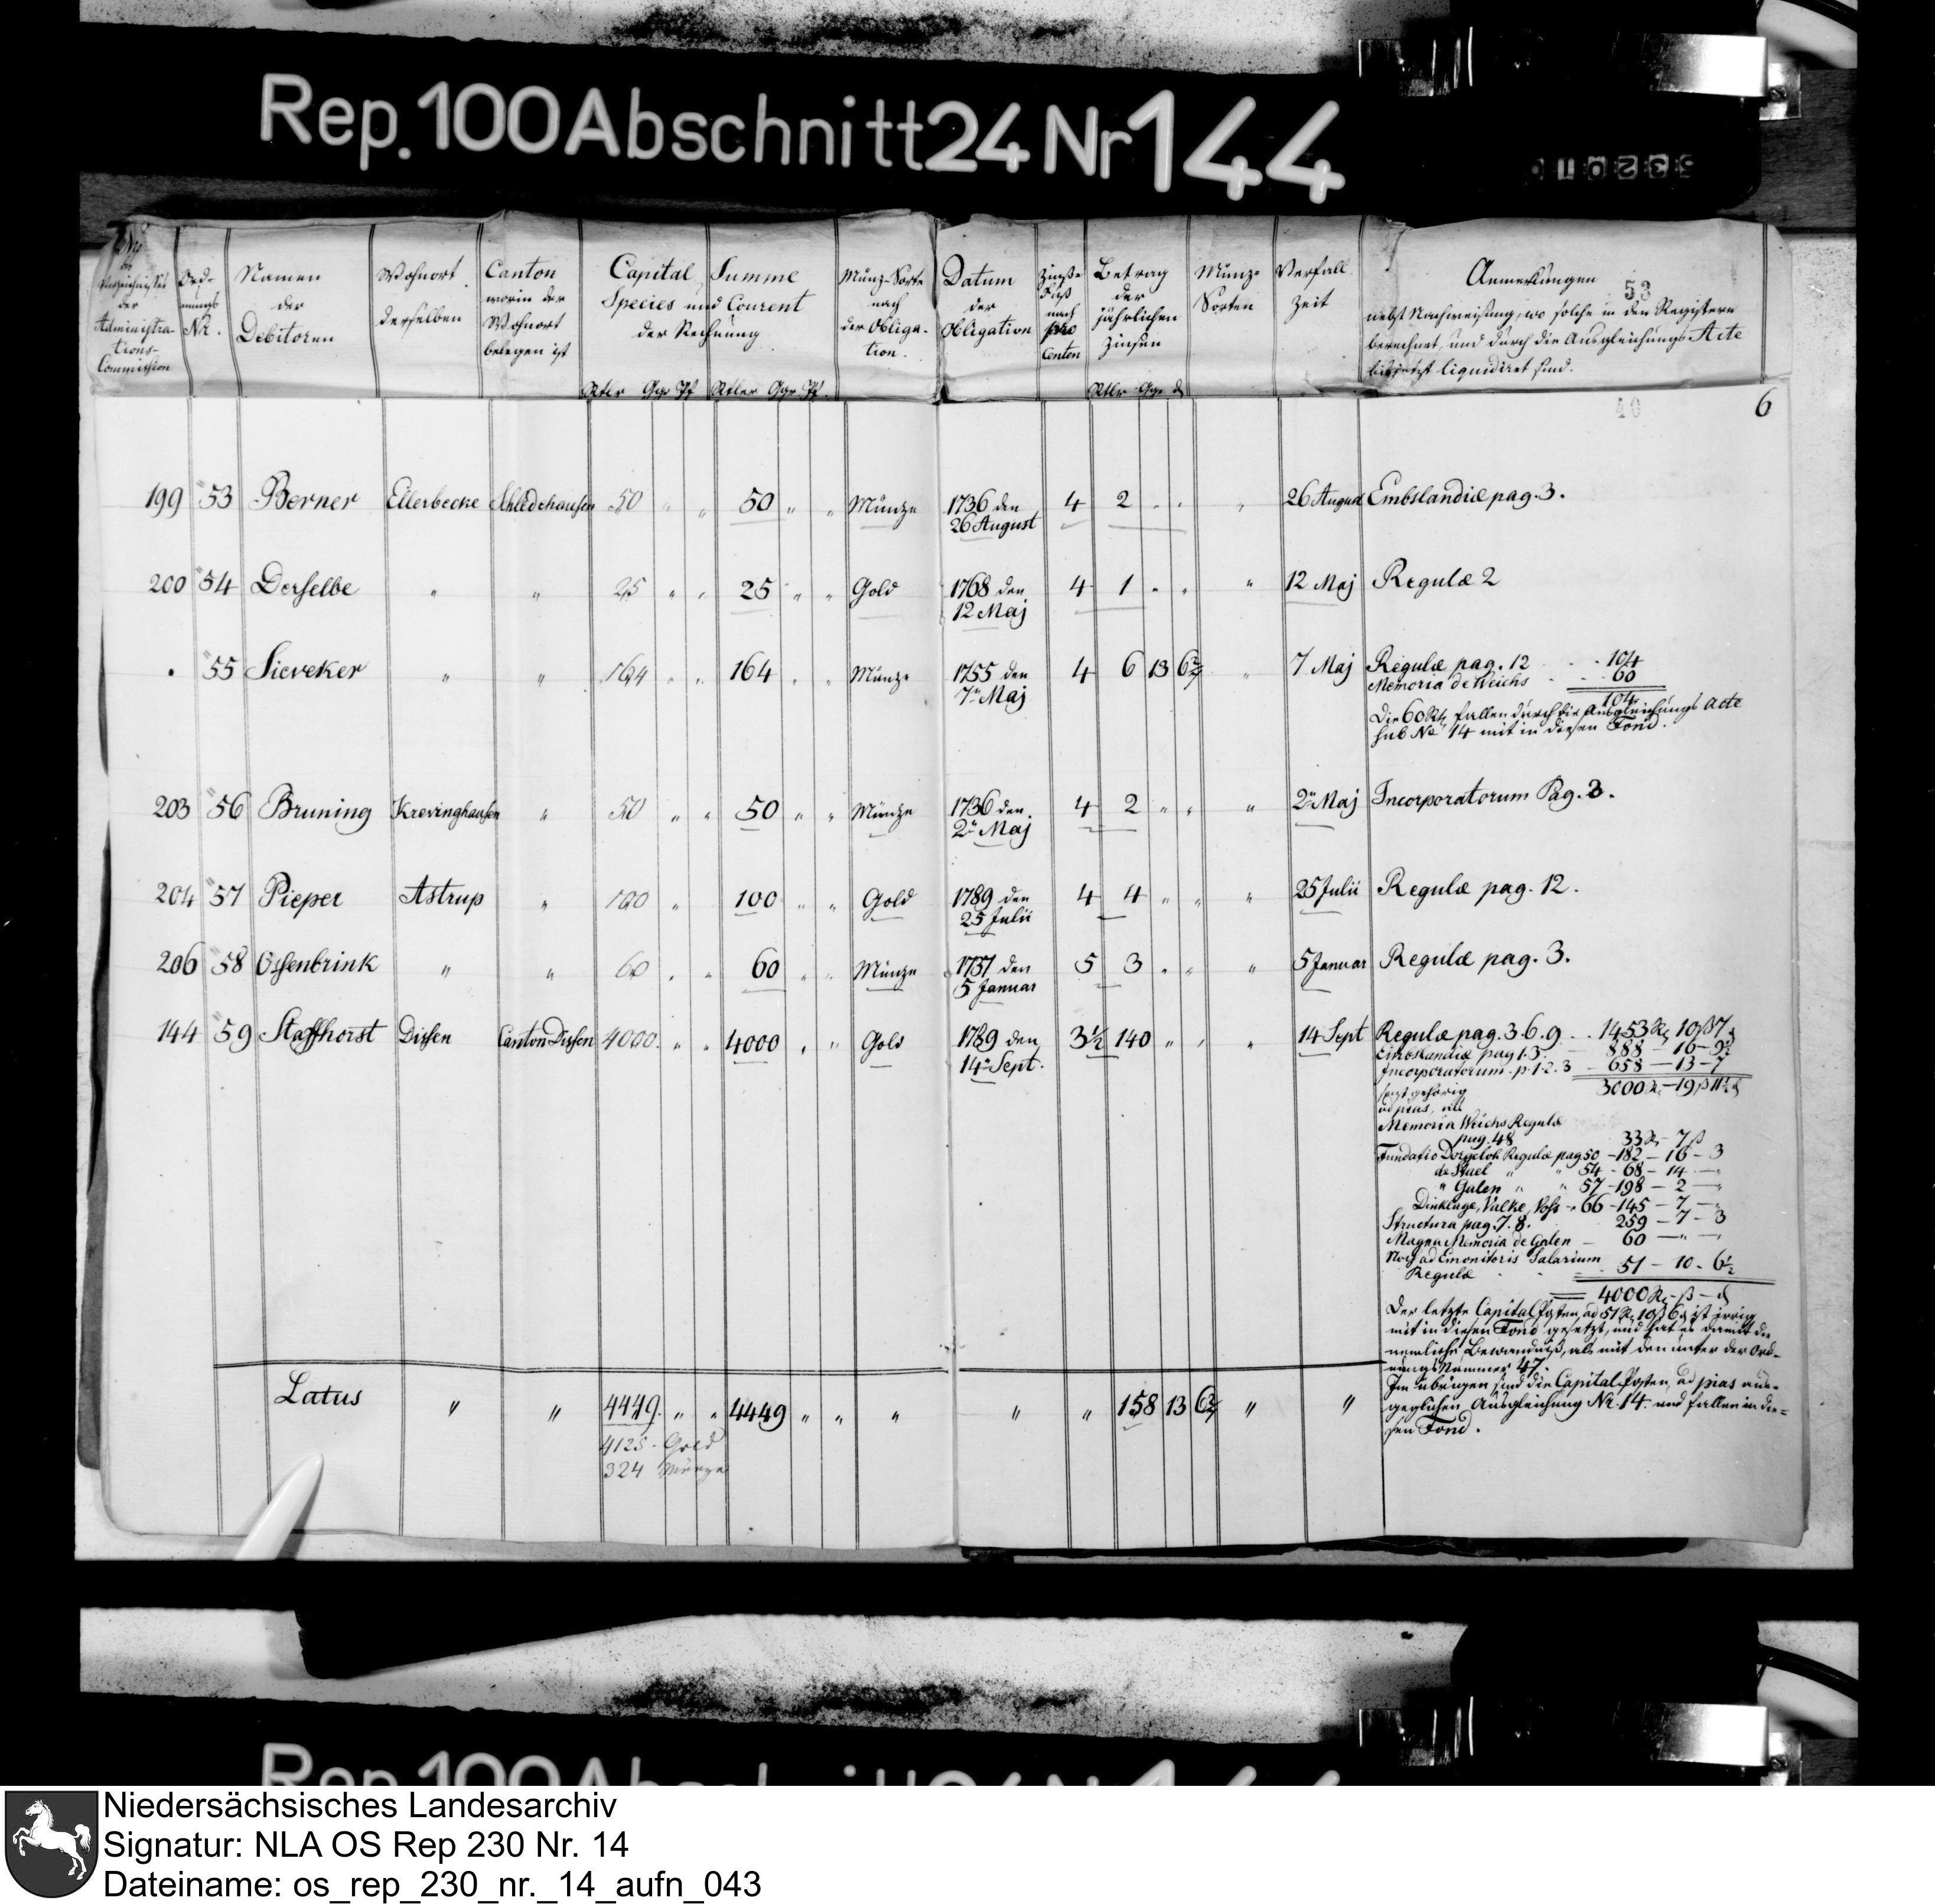 Rep. 100 Abschnitt 24 Nr 144
53
Nro des Verzeichnisses der Administrations-Commission
Ordnungs Nr.
Namen der Debitoren
Wohnort derselben
Canton worin der Wohnort belegen ist
Capital Summe
Species und Courent
der Rechnung
Rtlr Ggr Pf Rtler Ggr Pf.
Münz-Sorte nach der Obligation.
Datum der Obligation
Zinß-Fuß nach pro Centen
Betrag der jährlichen Zinsen
Rtlr Ggr d
Münz-Sorten
Verfall Zeit
Anmerkungen
nebst Nachweisung, wo solche in den Registern
berechnet, und durch die Ausgleichungs Acte
bis jetzt liquidiret sind.
40 6
199 53 Berner Ellerbecke Schledehausen 50 " " 50 " " Münze 1736 den 26 August 4 2 " " " 26 August Embslandiæ pag. 3.
200 54 Derselbe " " 25 " " 25 " " Gold 1768 den 12 Maj 4 1 " " " 12 Maj Regulæ 2
55 Sieveker " " 164 " " 164 " " Münze 1755 den 7n Maj 4 6 13 6 2/7 " 7 Maj Regulæ pag. 12 - - 104
Memoria de Weichs - - 60
104
Die 60 Rt fallen durch die Ausgleichungs Acte
sub No 14 mit in diesen Fond.
203 56 Bruning Krevinghausen " 50 " " 50 " " Münze 1736 den 2n Maj 4 2 " " " 2n Maj Incorporatorum Pag. 3.
204 57 Pieper Astrup " 100 " 100 " " Gold 1789 den 25 Julii 4 4 " " " 25 Julii Regulæ pag. 12.
206 58 Ossenbrink " " 60 " " 60 " " Münze 1751 den 5 Januar 5 3 " " " 5 Januar Regulæ pag. 3.
144 59 Staffhorst Dissen Canton Dissen 4000 " " 4000 " " Gold 1789 den 14n Sept. 3½ 140 " " " 14 Sept Regulæ pag. 3. 6. 9 - - 1453 R 10 ß 7 d
Embslandiæ pag 1. 3. - 888 - 16 - 9½
Incorporatorum p. 1. 2. 3 - 658 - 13 - 7
3000 R - 19 ß 11½ d
ad pias, als
Memoria Weichs Regulæ
pag. 48 33 R - 7 ß
Fundatio Dorgeloh Regulæ pag 50 - 182 - 16 - 3
de Stael " " 54 - 68 - 14 - "
" Galen " " 57 - 198 - 2 - "
Dinklage, Valke, Voss - " 66 - 145 - 7 - "
Structura pag. 7. 8. 259 - 7 - 3
Magna Memoria de Galen - 60 - " - "
Noch ad Emonitoris Salarium
Regulæ - - 51 - 10 - 6½
4000 R - ß - d
Der letzte Capital Posten ad 51 R 10 ß 6 d ist irrig
mit in diesen Fond gesetzt, und hat es damit die
nemliche Bewandniß, als mit den unter der Ord-
nungs Nummer 47.
Im übrigen sind die Capital Posten, ad pias aus-
geglichen Ausgleichung Nr. 14. und fallen in die-
sen Fond.
Latus " " 4449. " " 4449 " " " " " 158 13 6 2/7 " "
4125 - Gold
324 Münze
Niedersächsisches Landesarchiv
Signatur: NLA OS Rep 230 Nr. 14
Dateiname: os_rep_230_nr._14_aufn_043